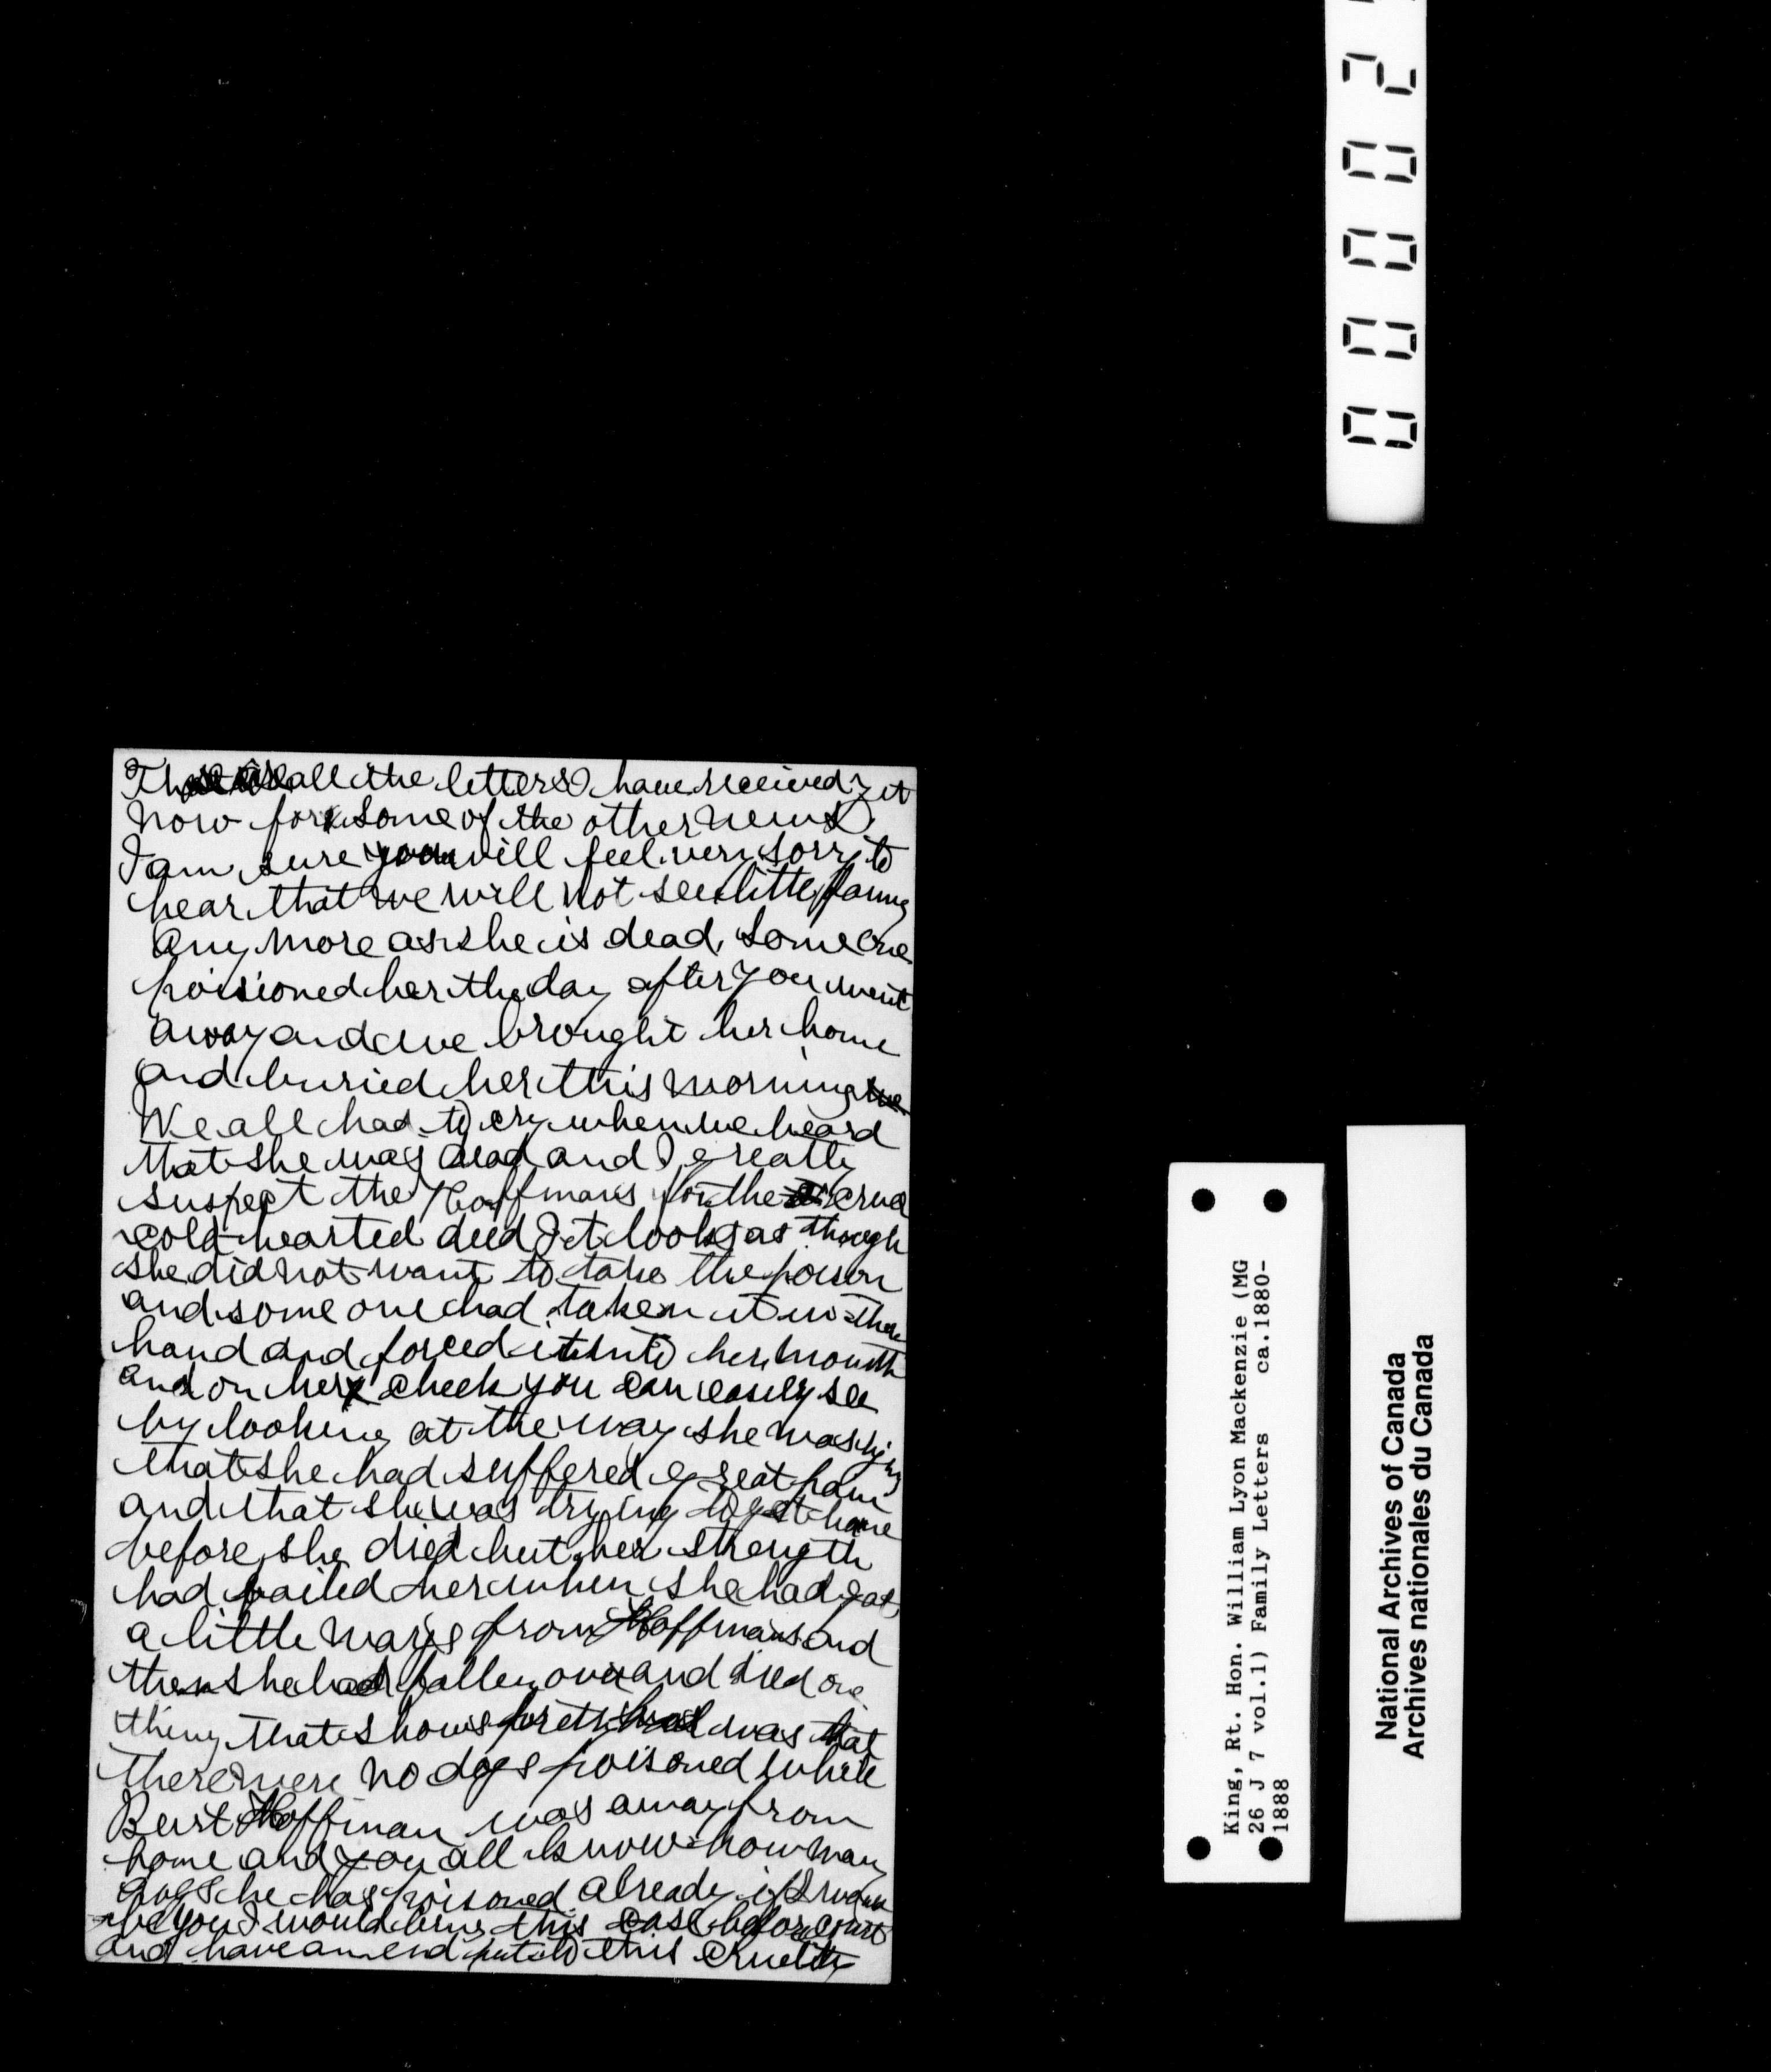 These are all the letters I have received yet
now for some of the other news
I am sure you will feel very sorry to
hear that we will not see little Fanny
any more as she is dead, Some one
poisioned her the day after you went
away and we brought her home
and buried her this morning
We all had to cry when we heard
that she was dead and I greatly
suspect the Hoffmans for the cruel
cold hearted deed It looks as though
she did not want to take the poison
and some one had taken it in their
hand and forced it into her mouth
and on her cheek you can easily see
by looking at the way she was lying
that she had suffered great pain
and that she was trying to get home
before she died but her strength
had failed her when she had got
a little ways from Hoffmans and
then she had fallen over and died one
thing that shows for it was that
there were no dogs poisoned while
Bert Hoffman was away from
home and you all know how many
dogs he has poisoned already if I
be you I would bring this case before court
and have an end put to this cruelty
0 0 0 0 2
King, Rt. Hon. William Lyon Mackenzie (MG
26 J 7 vol.1) Family Letters ca.1880-
1888
National Archives of Canada
Archives nationales du Canada